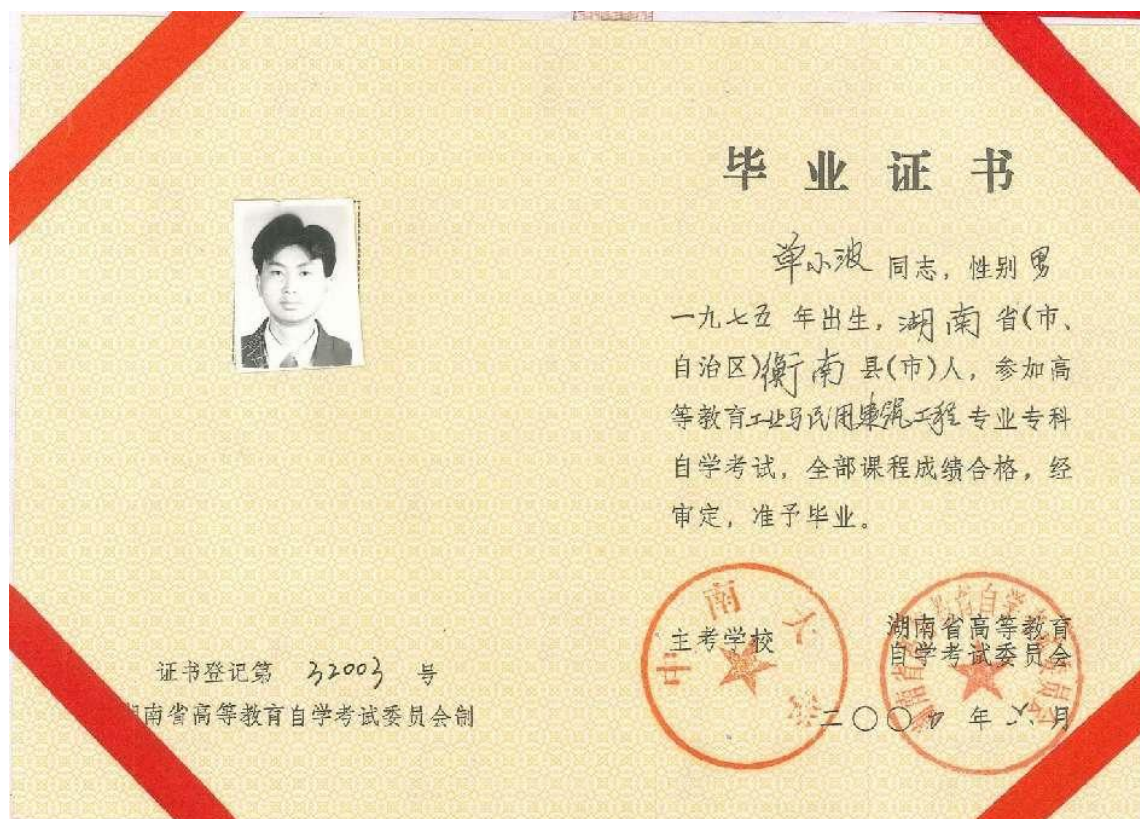 毕业证书
单小波 同志，性别 男
一九七五 年出生，湖南 省(市、
自治区)衡南 县(市)人，参加高
等教育工业与民用建筑工程 专业专科
自学考试，全部课程成绩合格，经
审定，准予毕业。
中南大学
主考学校
湖南省高等教育
自学考试委员会
二〇〇 年 六 月
证书登记第 32003 号
湖南省高等教育自学考试委员会制